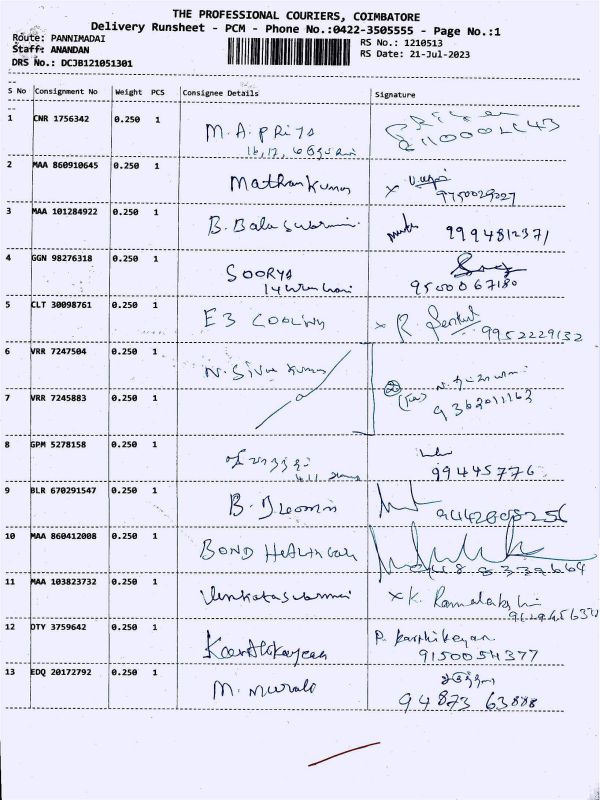 THE PROFESSIONAL COURIERS, COIMBATORE
Delivery Runsheet - PCM - Phone No.:0422-3505555 - Page No.:1
Route: PANNIMADAI
Staff: ANANDAN
DRS No.: DCJB121051301
RS No.: 1210513
RS Date: 21-Jul-2023
S No Consignment No Weight PCS Consignee Details Signature
1 CNR 1756342 0.250 1 M.A. Priya
2 MAA 860910645 0.250 1 Mathan Kumar
9750029227
3 MAA 101284922 0.250 1 B. Bala Swarmi 9994812371
4 GGN 98276318 0.250 1 SOORYA
9500067180
5 CLT 30098761 0.250 1 E3 COOLING x R. 9952229132
6 VRR 7247504 0.250 1 N. Siva Kumar
7 VRR 7245883 0.250 1
9362011163
8 GPM 5278158 0.250 1
99445776
9 BLR 670291547 0.250 1 B.
10 MAA 860412008 0.250 1 BOND Health Care
11 MAA 103823732 0.250 1 Venkataswarmi x K. Ramalakshi
12 OTY 3759642 0.250 1 Karthikeyan P. Karthikeyan
9150054377
13 EDQ 20172792 0.250 1 M. Murali
94873 63888